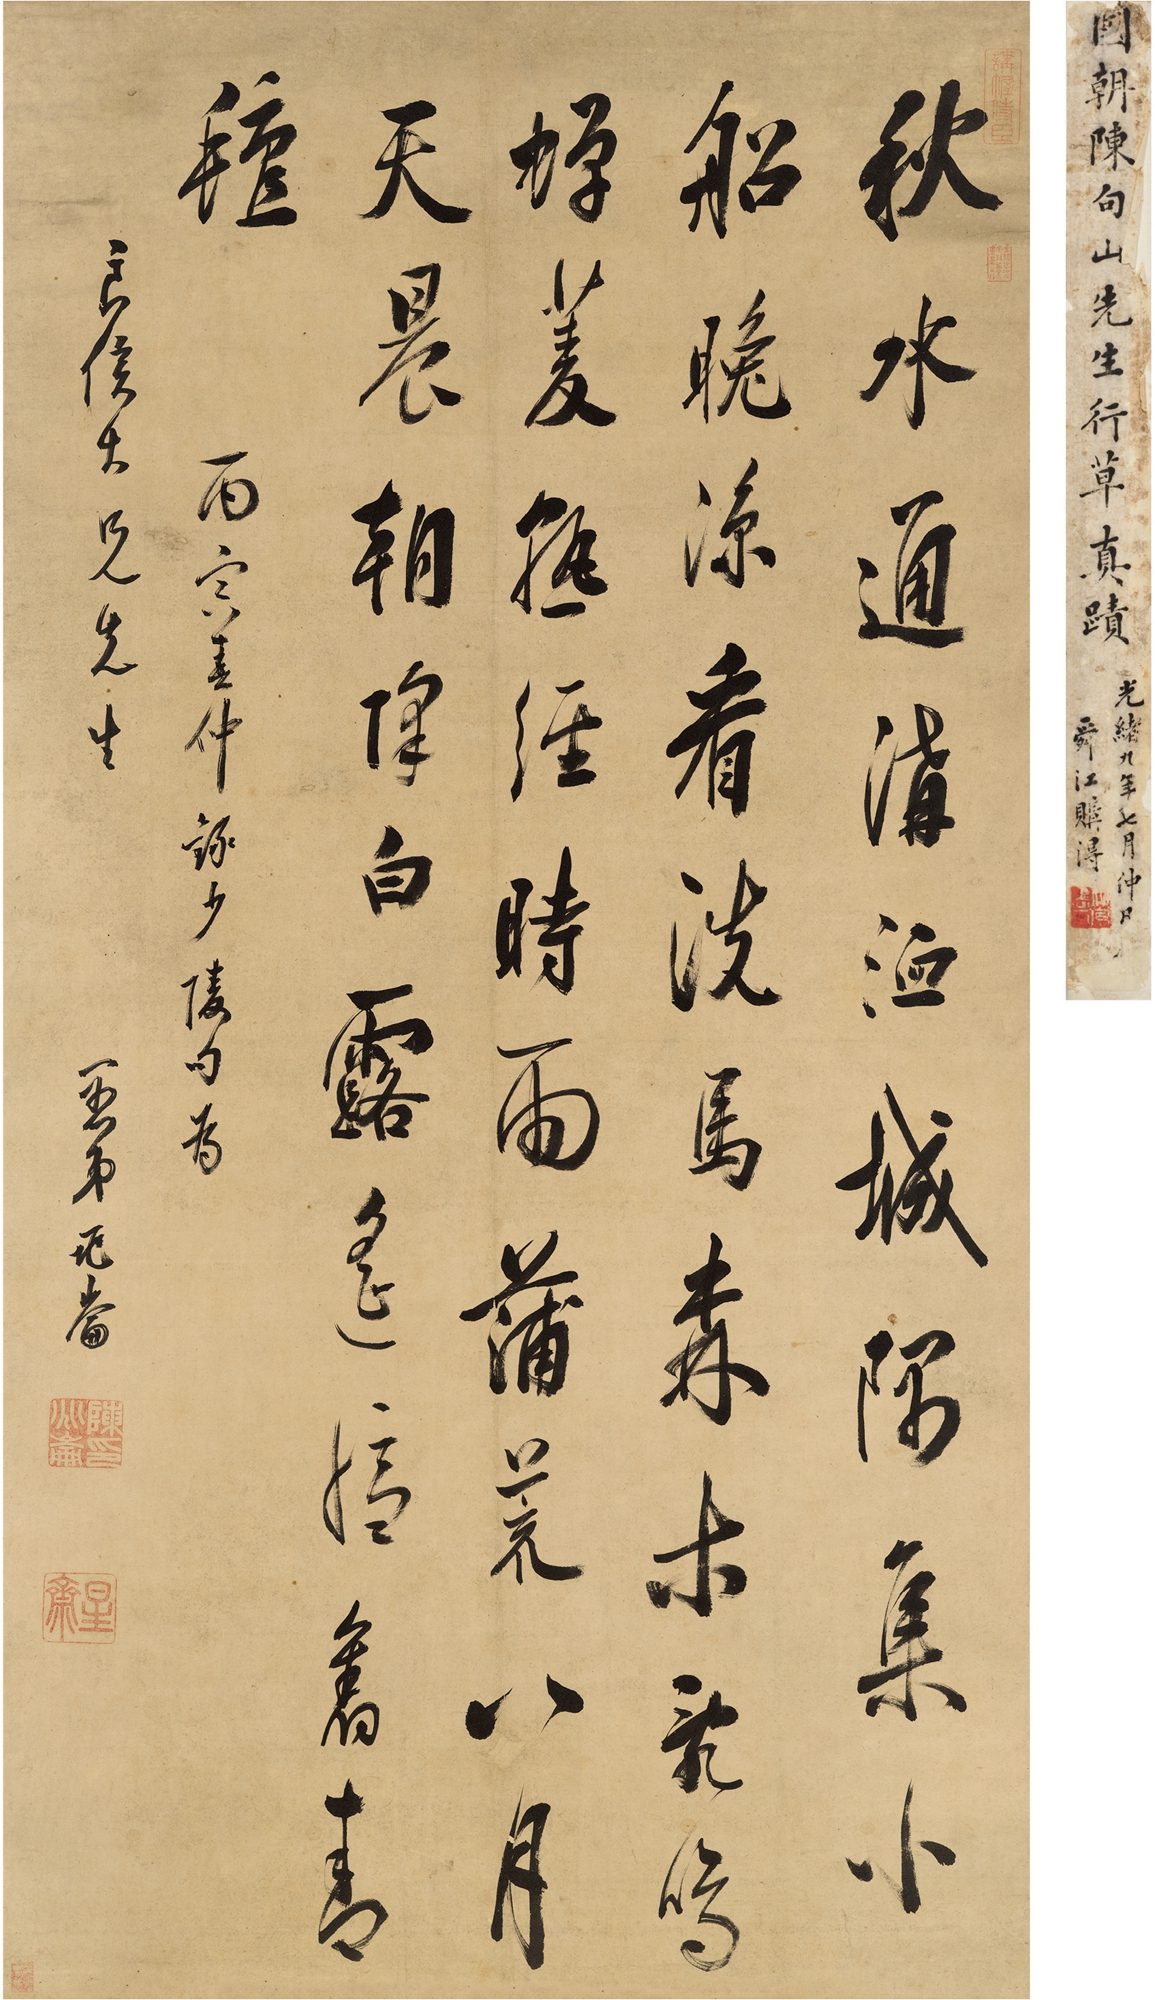 國朝陳句山先生行草真蹟
光緒九年七月仲日
舜江購得
秋水通溝洫城隅集小
船晚涼看洗馬森木亂鳴
蟬菱熟經時雨蒲荒八月
天晨朝降白露遙憶舊青
氈
丙寅春仲錄少陵句為
良侯大兄先生
愚弟兆崙
陳印兆崙
星齋